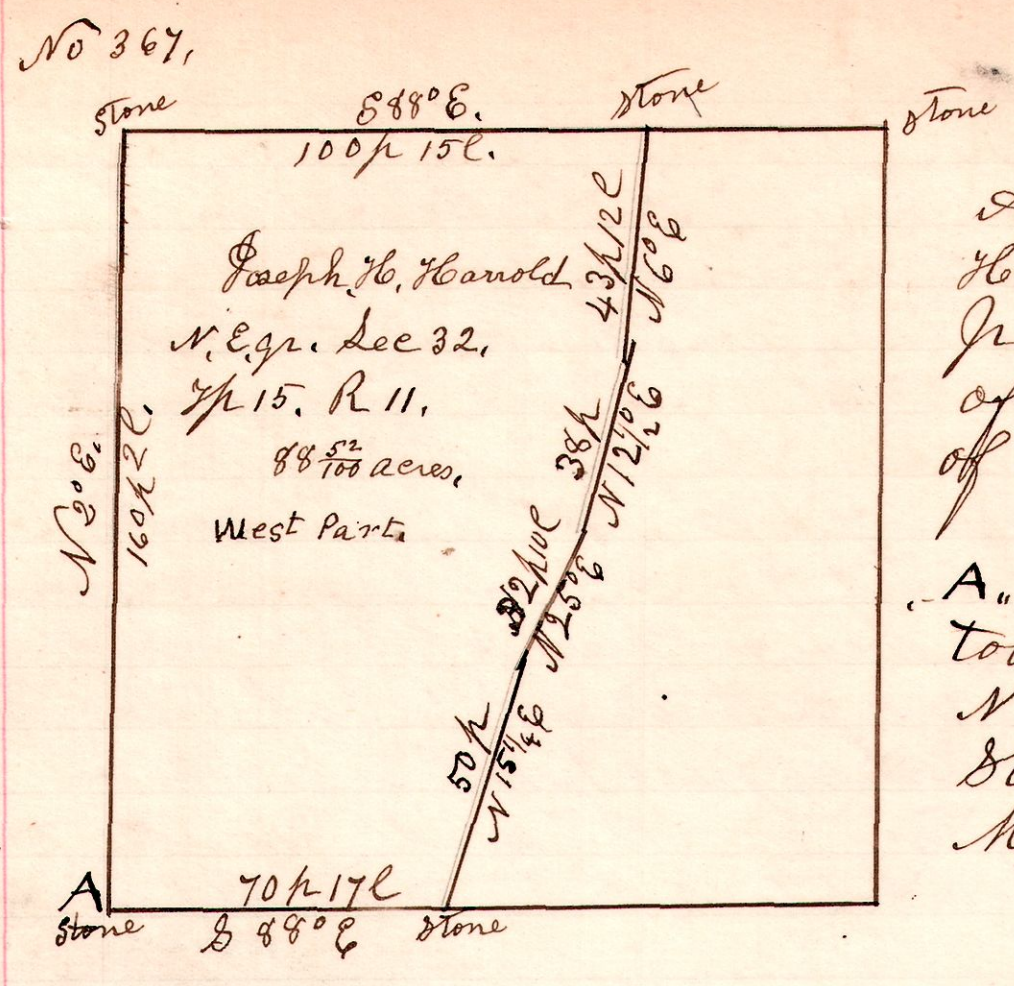 No 367,
Stone S 88° E. Stone Stone
100p 15l.
43p 12l
N 6° E
Joseph. H. Harrold
N. E. qr. Sec 32.
Tp 15. R 11.
88 52/100 acres.
West Part.
N 2° E.
160p 2l.
38p
N 12 1/2° E
32p 10l
N 25° E
50p
N 15 1/4 E
A
70p 17l
Stone S 88° E Stone
H
of
of
A "
N